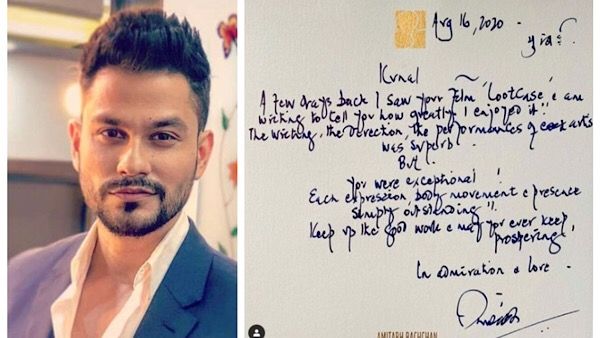 Aug 16, 2020
Kunal
A few days back I saw your film 'LootCase' e am
writing to tell you how greatly I enjoyed it!!
The writing, the direction, the performances of artists
was superb.
But
you were exceptional!
Each expression body movement e presence
simply outstanding!!
Keep up the good work e may you ever keep
prospering!
In admiration e love.
AMITABH BACHCHAN